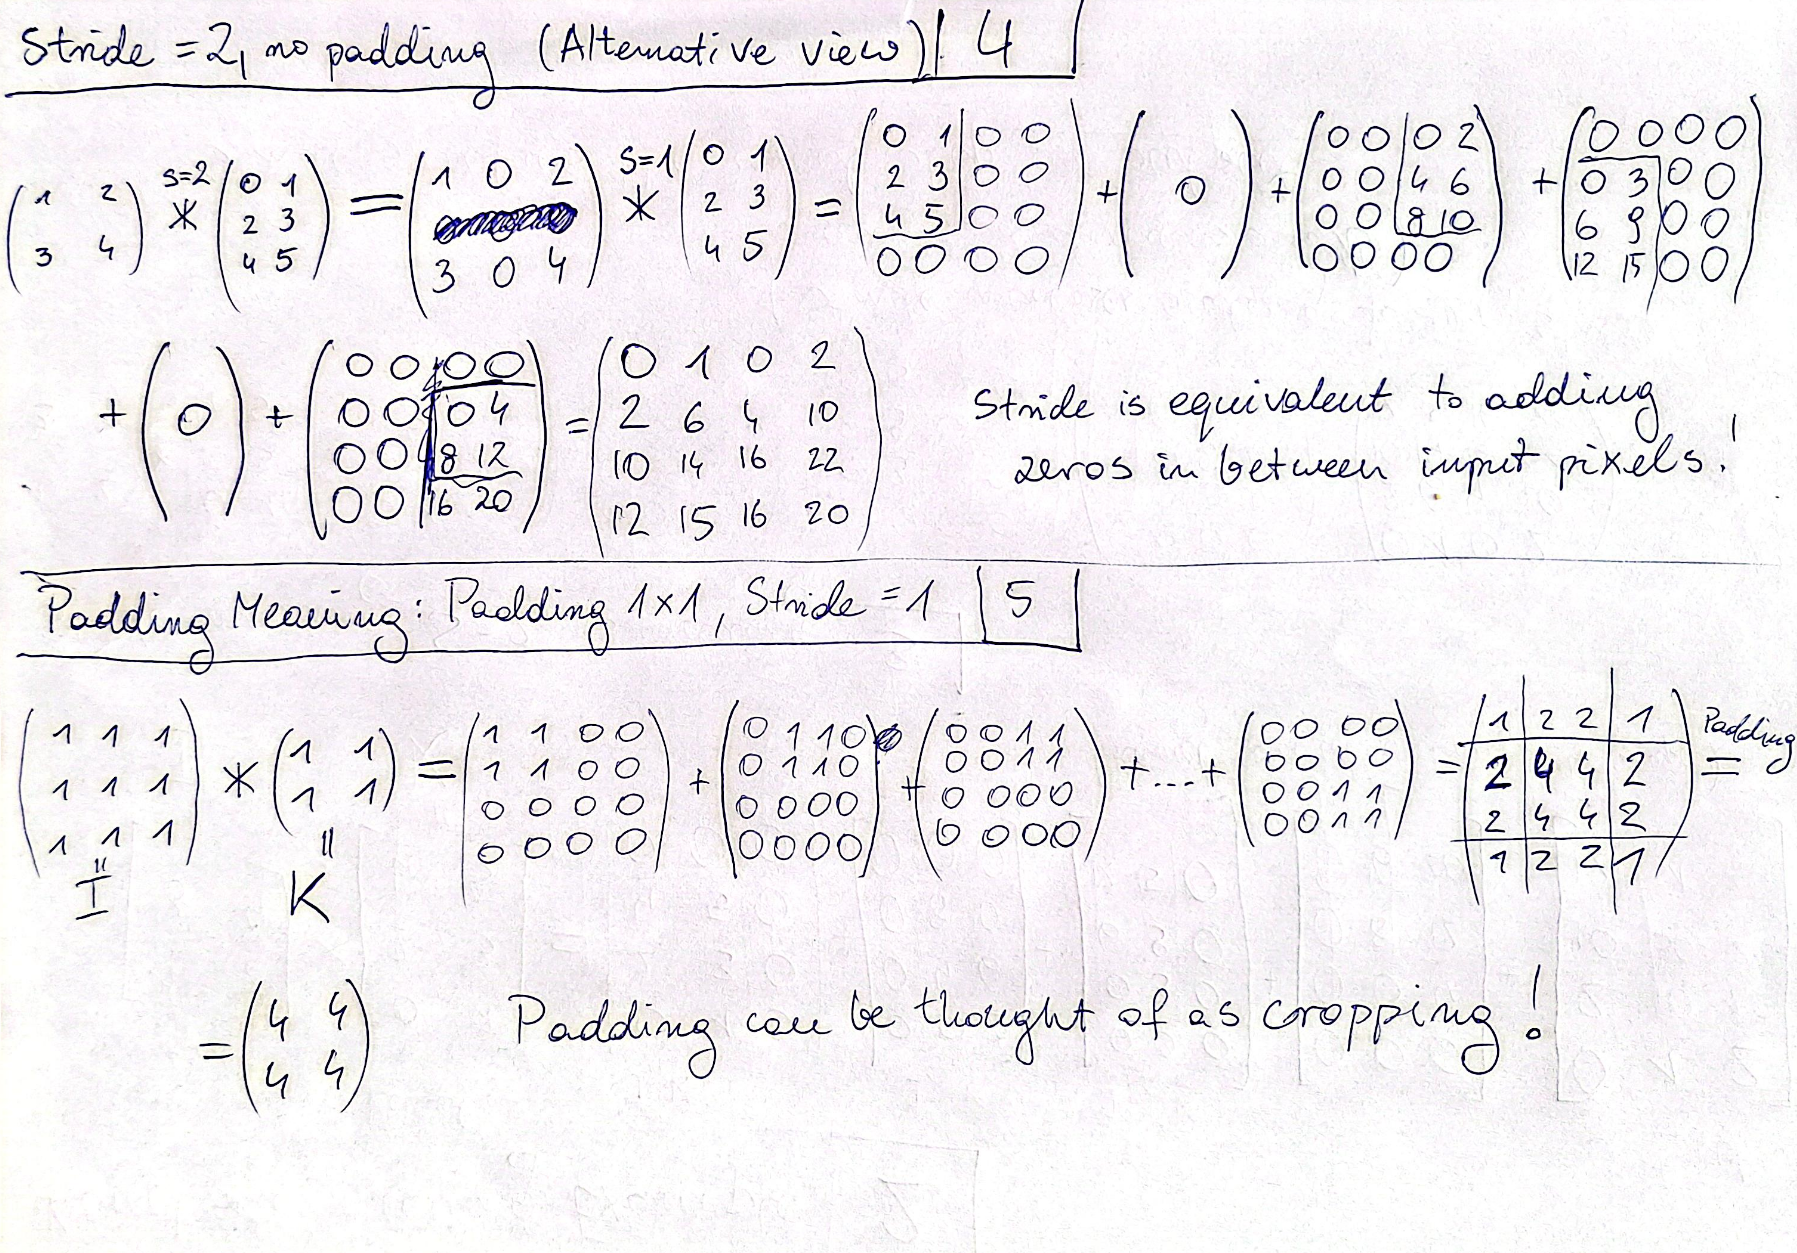 Stride = 2, no padding (Alternative view) | 4
( 1 2 ; 3 4 ) s=2 * ( 0 1 ; 2 3 ; 4 5 ) = ( 1 0 2 ; 3 0 4 ) s=1 * ( 0 1 ; 2 3 ; 4 5 ) = ( 0 1 0 0 ; 2 3 0 0 ; 4 5 0 0 ; 0 0 0 0 ) + ( 0 ) + ( 0 0 0 2 ; 0 0 4 6 ; 0 0 8 10 ; 0 0 0 0 ) + ( 0 0 0 0 ; 0 3 0 0 ; 6 9 0 0 ; 12 15 0 0 )
+ ( 0 ) + ( 0 0 0 0 ; 0 0 0 4 ; 0 0 8 12 ; 0 0 16 20 ) = ( 0 1 0 2 ; 2 6 4 10 ; 10 14 16 22 ; 12 15 16 20 )
Stride is equivalent to adding
zeros in between input pixels!
Padding Meaning: Padding 1x1, Stride = 1 | 5
( 1 1 1 ; 1 1 1 ; 1 1 1 ) * ( 1 1 ; 1 1 ) = ( 1 1 0 0 ; 1 1 0 0 ; 0 0 0 0 ; 0 0 0 0 ) + ( 0 1 1 0 ; 0 1 1 0 ; 0 0 0 0 ; 0 0 0 0 ) + ( 0 0 1 1 ; 0 0 1 1 ; 0 0 0 0 ; 0 0 0 0 ) + ... + ( 0 0 0 0 ; 0 0 0 0 ; 0 0 1 1 ; 0 0 1 1 ) = ( 1 2 2 1 ; 2 4 4 2 ; 2 4 4 2 ; 1 2 2 1 ) Padding =
= I = K
= ( 4 4 ; 4 4 ) Padding can be thought of as cropping!